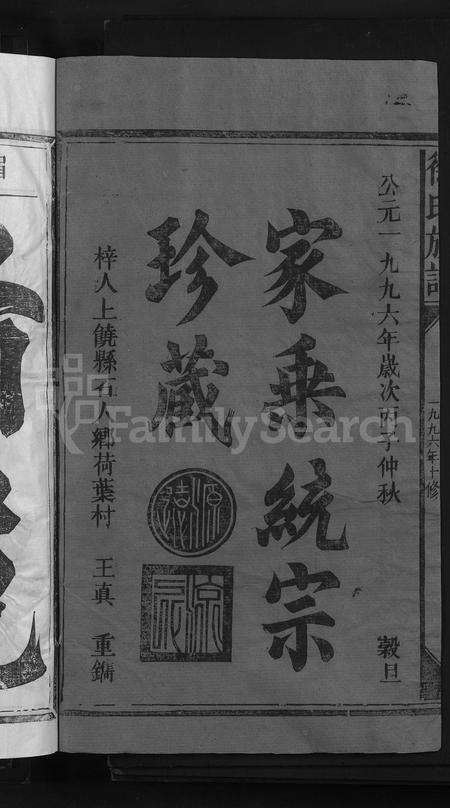 徐氏族譜
一九九六年十修
公元一九九六年歲次丙子仲秋 穀旦
家乘統宗
珍藏
源遠
流長
梓人上饒縣石人鄉荷葉村 王真 重鐫
FamilySearch